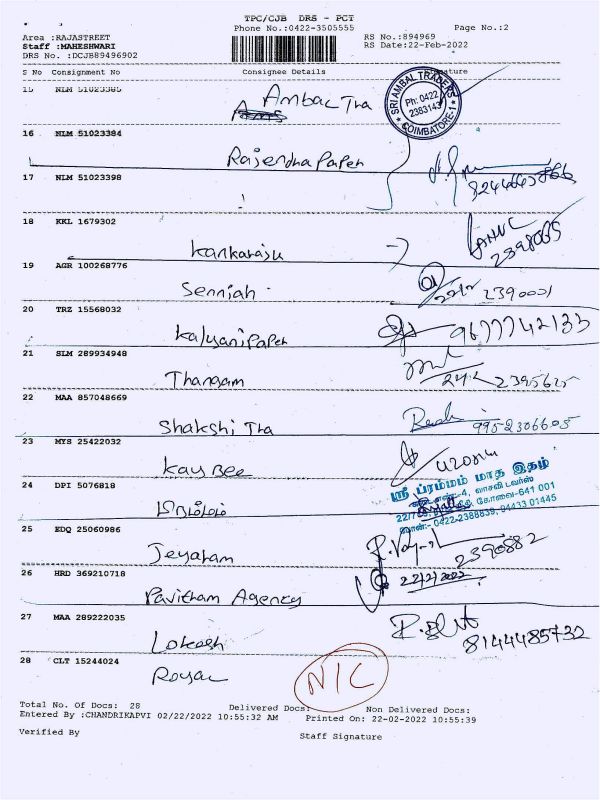 TPC/CJB DRS - PCT
Phone No.:0422-3505555 Page No.:2
Area :RAJASTREET RS No.:894969
Staff :MAHESHWARI RS Date:22-Feb-2022
DRS No. :DCJB89496902
S No Consignment No Consignee Details
15 NLM 51023385 Ambal Tra
SRI AMBAL TRADERS
Ph: 0422
2383143
COIMBATORE-1
16 NLM 51023384
Rajendra Paper
17 NLM 51023398
18 KKL 1679302
Kankaraju 2398035
19 AGR 100268776
Senniah 2390001
20 TRZ 15568032
Kalyani Paper 9677742133
21 SLM 289934948
Thangam 2395625
22 MAA 857048669
Shakshi Tra 9952306605
23 MYS 25422032
Kay Bee
24 DPI 5076818
பிரம்மம்
ஸ்ரீ ப்ரம்மம் மாத இதழ்
கோவை-641 001
0422-2388839, 94433 01445
25 EDQ 25060986
Jeyaram 2390882
26 HRD 369210718 22/2/2022
Pavithram Agency
27 MAA 289222035
Lokesh 8144485732
28 CLT 15244024
Royal N/C
Total No. Of Docs: 28 Delivered Docs: Non Delivered Docs:
Entered By :CHANDRIKAPVI 02/22/2022 10:55:32 AM Printed On: 22-02-2022 10:55:39
Verified By Staff Signature